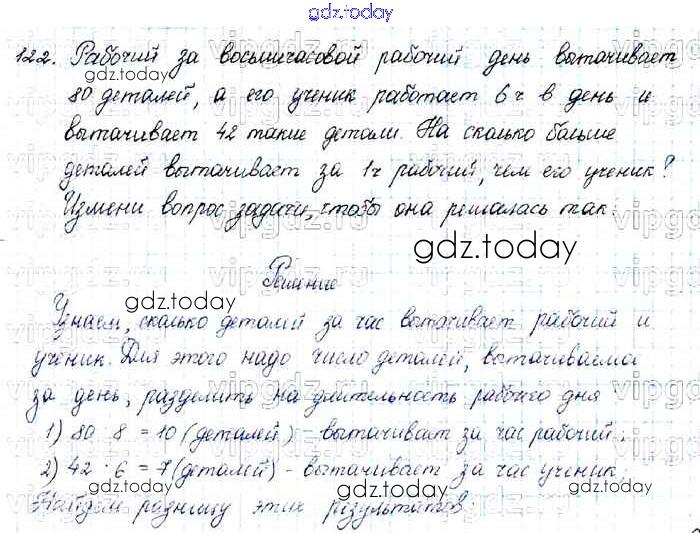 gdz.today
122. Рабочий за восьмичасовой рабочий день вытачивает
gdz.today
80 деталей, а его ученик работает 6 ч в день и
вытачивает 42 такие детали. На сколько больше
деталей вытачивает за 1 ч рабочий, чем его ученик?
Измени вопрос задачи, чтобы она решалась так:
gdz.today
Решение
gdz.today
Узнаем, сколько деталей за час вытачивает рабочий и
ученик. Для этого надо число деталей, вытачиваема
за день, разделить на длительность рабочего дня
1) 80 : 8 = 10 (деталей) – вытачивает за час рабочий;
2) 42 : 6 = 7 (деталей) – вытачивает за час ученик;
Найдем разницу этих результатов:
gdz.today
gdz.today
vipgdz.ru